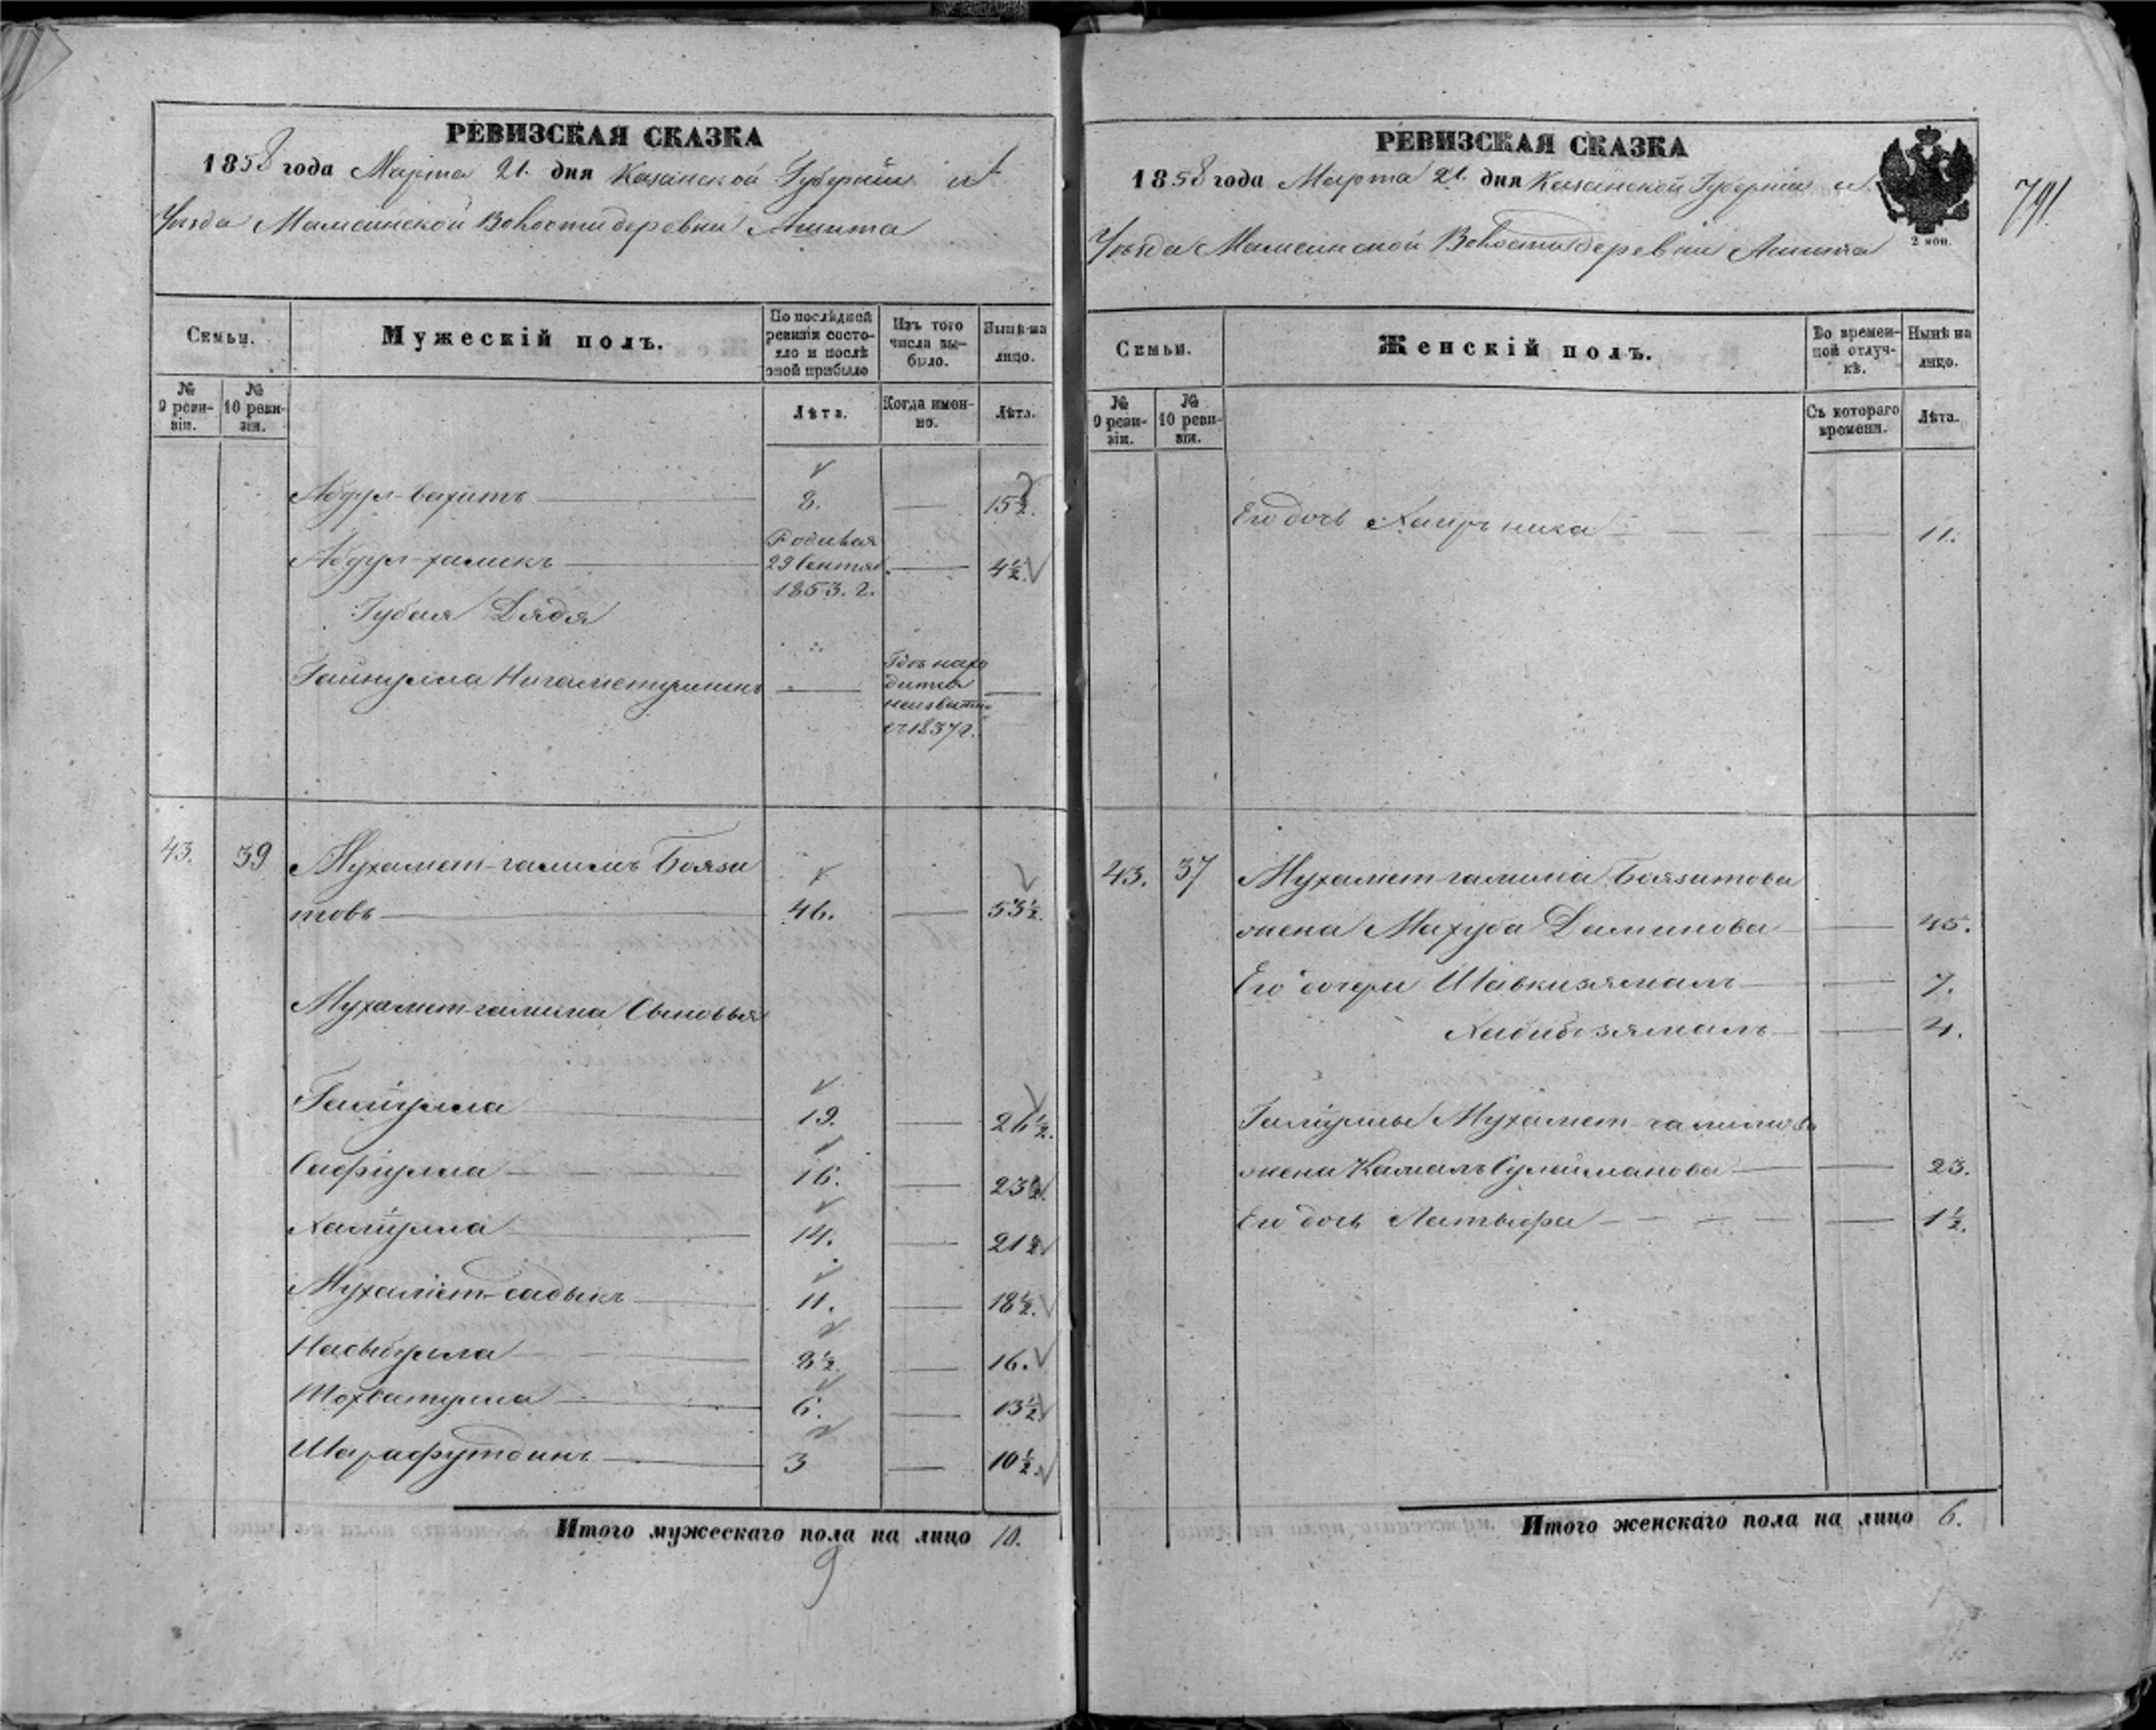 РЕВИЗСКАЯ СКАЗКА
1858 года Марта 21. дня Казанской Губернии и
Уезда Мамсинской Волости деревни Ашита
Семьи.
Мужескій полъ.
По послѣдней ревизіи состояло и послѣ оной прибыло
Изъ того числа выбыло.
Нынѣ на лицо.
№ 9 ревизіи.
№ 10 ревизіи.
Лѣта.
Когда именно.
Лѣта.
Абдул-вахитъ 8. — 15½.
Абдул-халикъ Родился 29 Сентяб. 1853. г. — 4½.
Губая Дядя
Гайнулла Нигаметуллинъ — Гдѣ находится неизвестно с 1837 г. —
43. 39 Мухамет-галимъ Боязи
товъ 46. — 53½.
Мухамет-галима Сыновья
Галиулла 19. — 26½.
Сафиулла 16. — 23½.
Халиулла 14. — 21½
Мухамет-садыкъ 11. — 18½.
Насыбулла 8½. — 16.
Шохватулла 6. — 13½.
Шарафутдинъ 3 — 10½.
Итого мужескаго пола на лицо 10.
9
РЕВИЗСКАЯ СКАЗКА
1858 года Марта 21. дня Казанской Губернии и
Уѣзда Мамсинской Волости деревни Ашита
2 коп.
791.
Семьи.
Женскій полъ.
Во временной отлучкѣ.
Нынѣ на лицо.
№ 9 ревизіи.
№ 10 ревизіи.
Съ котораго времени.
Лѣта.
Его дочь — 11.
43. 37 Мухамет-галима Боязитова
жена Махуба Даминова — 45.
Его дочери Шавкизямалъ — 7.
Хабибзямалъ — 4.
Галиуллы Мухамет галимова
жена Камалъ Сулейманова — 23.
Его дочь Латыфа — 1½.
Итого женскаго пола на лицо 6.